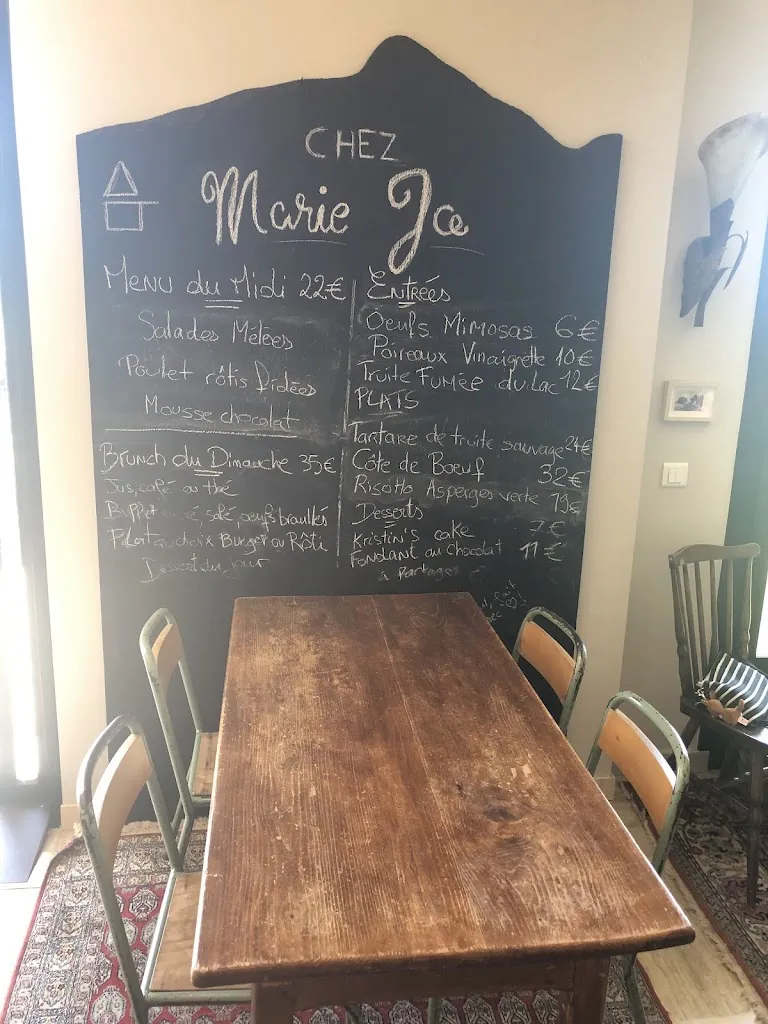 CHEZ
Marie Jo
Menu du Midi 22€
Salades Mélées
Poulet rôtis Pidées
Mousse chocolat
Brunch du Dimanche 35€
Jus, café ou thé
Buffet sucré, salé, oeufs brouillés
Plat au choix Burger ou Rôti
Dessert du jour
Entrées
Oeufs Mimosas 6€
Poireaux Vinaigrette 10€
Truite Fumée du Lac 12€
PLATS
Tartare de truite sauvage 24€
Côte de Boeuf 32€
Risotto Asperges verte 19€
Desserts
Kristin's cake 7€
Fondant au chocolat 11€
à Partager